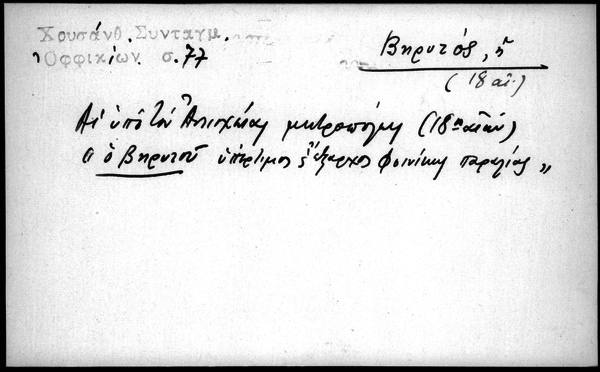 Χρυσάνθ. Συνταγμ.
Ὀφφικίων. σ. 77
Βηρυτός, ἡ
(18 αἰ.)
Αἱ ὑπὸ τὸν Ἀντιοχείας μητροπόλεις (18ος αἰών)
« ὁ Βηρυτοῦ ὑπέρτιμος κ' ἔξαρχος Φοινίκης παραλίας »